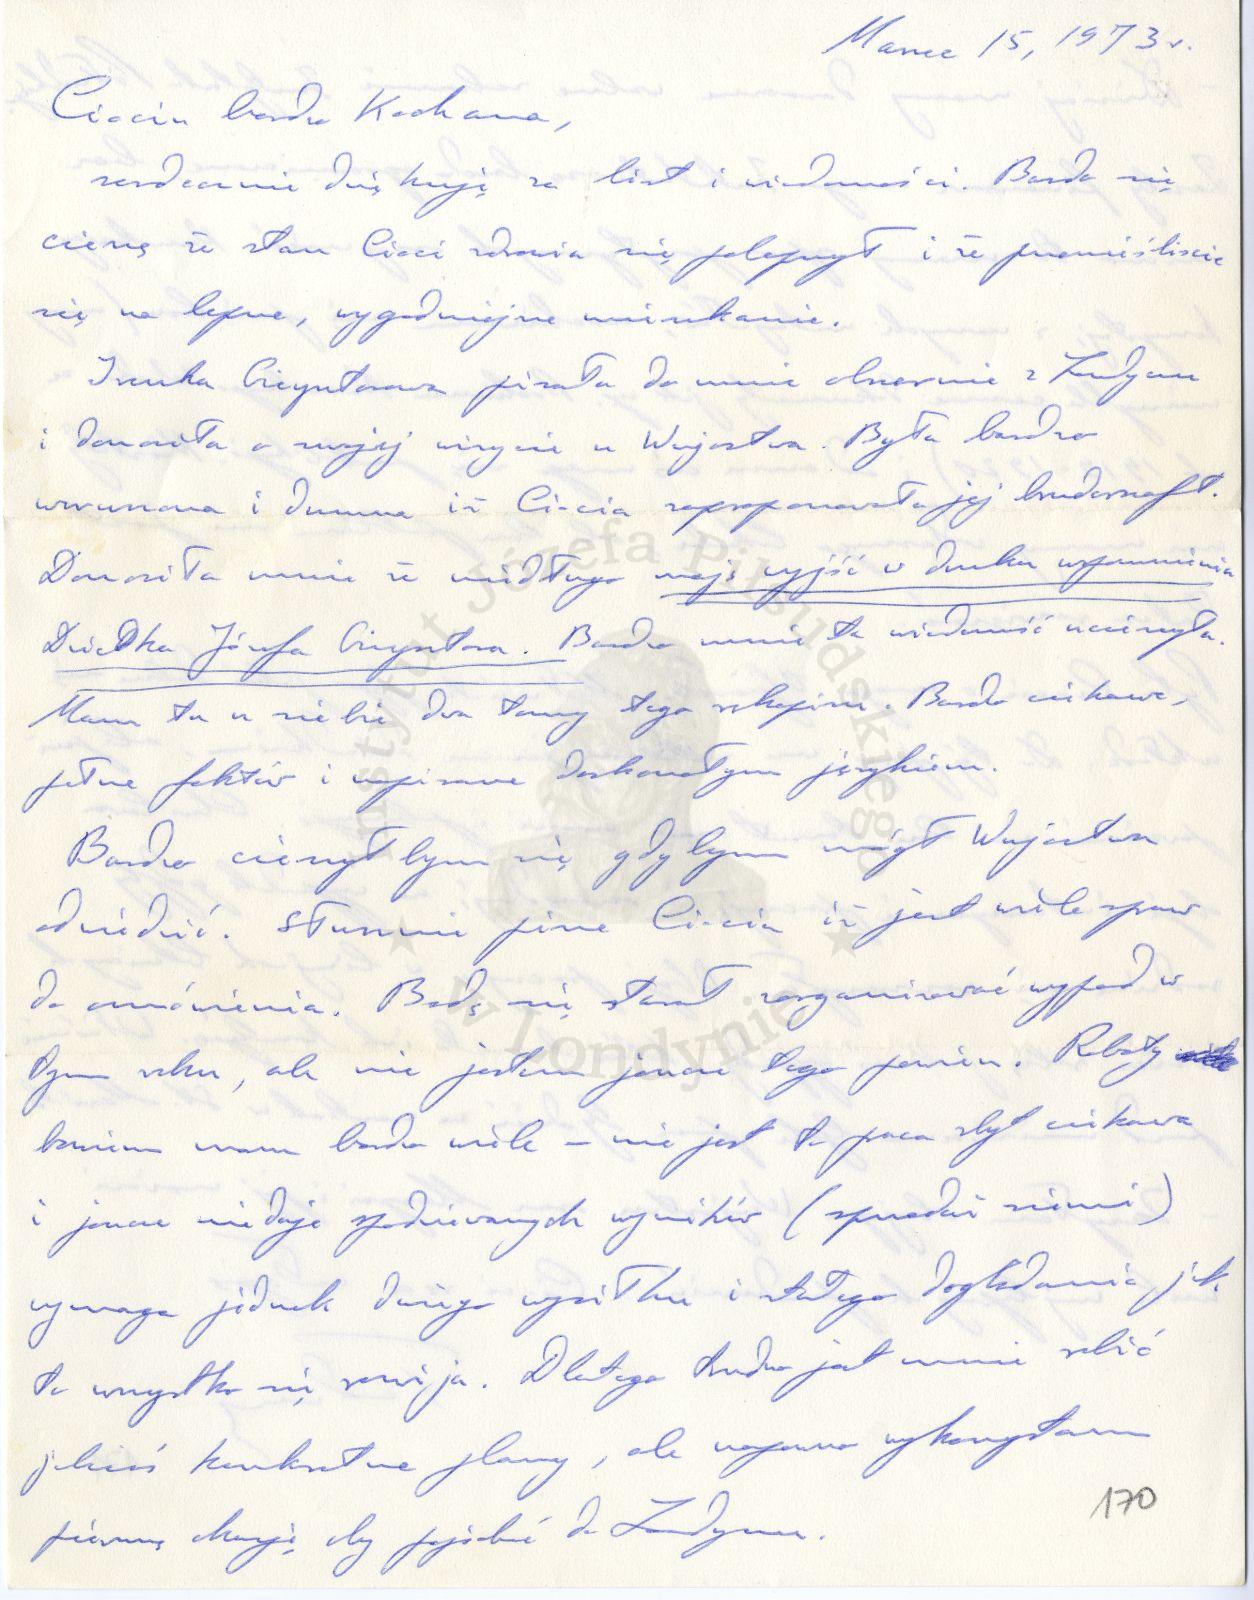 Marzec 15, 1973 r.
Ciociu bardzo Kochana,
serdecznie dziękuję za list i wiadomości. Bardzo się
cieszę że stan Cioci zdrowia się polepszył i że przenieśliście
się na lepsze, wygodniejsze mieszkanie.
Irenka pisała do mnie obszernie z Londynu
i donosiła o swojej wizycie u Wujostwa. Była bardzo
wzruszona i dumna iż Ciocia zaproponowała jej bruderszaft.
Donosiła mnie że niedługo mają wyjść w druku wspomnienia
Dziadka Józefa. Bardzo mnie ta wiadomość ucieszyła.
Mam tu u siebie dwa tomy tego rękopisu. Bardzo ciekawe,
pełne faktów i napisane doskonałym językiem.
Bardzo cieszyłbym się gdybym mógł Wujostwa
odwiedzić. Słusznie pisze Ciocia iż jest wiele spraw
do omówienia. Będę się starał zorganizować wypad w
tym roku, ale nie jestem jeszcze tego pewien. Roboty
bowiem mam bardzo wiele – nie jest to praca zbyt ciekawa
i jeszcze nie daje spodziewanych wyników (sprzedaż ziemi)
wymaga jednak dużego wysiłku i stałego doglądania jak
to wszystko się rozwija. Dlatego trudno jest mnie robić
jakieś konkretne plany, ale napewno wykorzystam
pierwszą okazję aby pojechać do Londynu.
170
Instytut Józefa Piłsudskiego
★ w Londynie ★